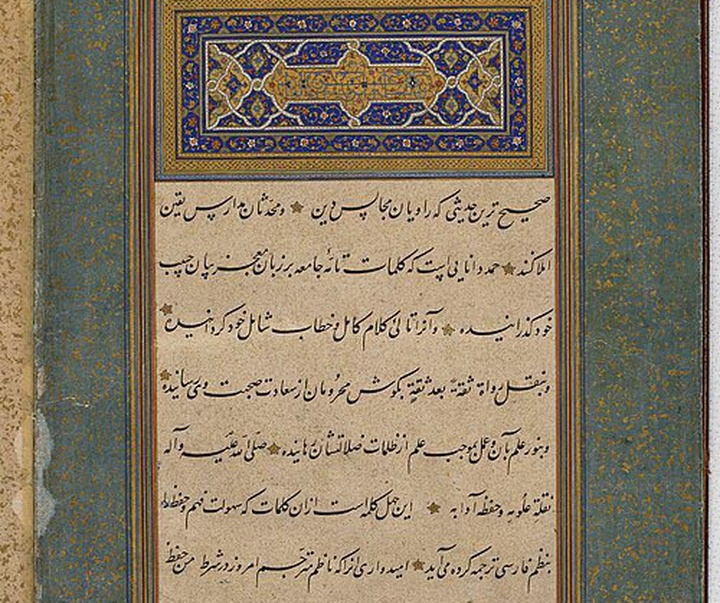 صحیح ترین حدیثی که راویان مجالس دین و محدثان مدارس یقین
املا کنند حمد دانایی است که کلمات تامّهٔ جامعه بر زبان معجز بیان حبیب
خود گذرانیده و آنرا تالی کلام کامل و خطاب شامل خود گردانیده
و بنقل رواة ثقةً بعد ثقةٍ بگوش محرومان از سعادت صحبت وی رسانیده
و بنور علم بآن و عمل بموجب علم از ظلمات ضلالتشان رهانیده صلی الله علیه و آله
نقلة علومه و حفظة آدابه این چهل کلمه است از آن کلمات که سهولت فهم و حفظ را
بنظم فارسی ترجمه کرده می آید امیدواری آنرا که ناظم مترجم امروز در شرط من حفظ